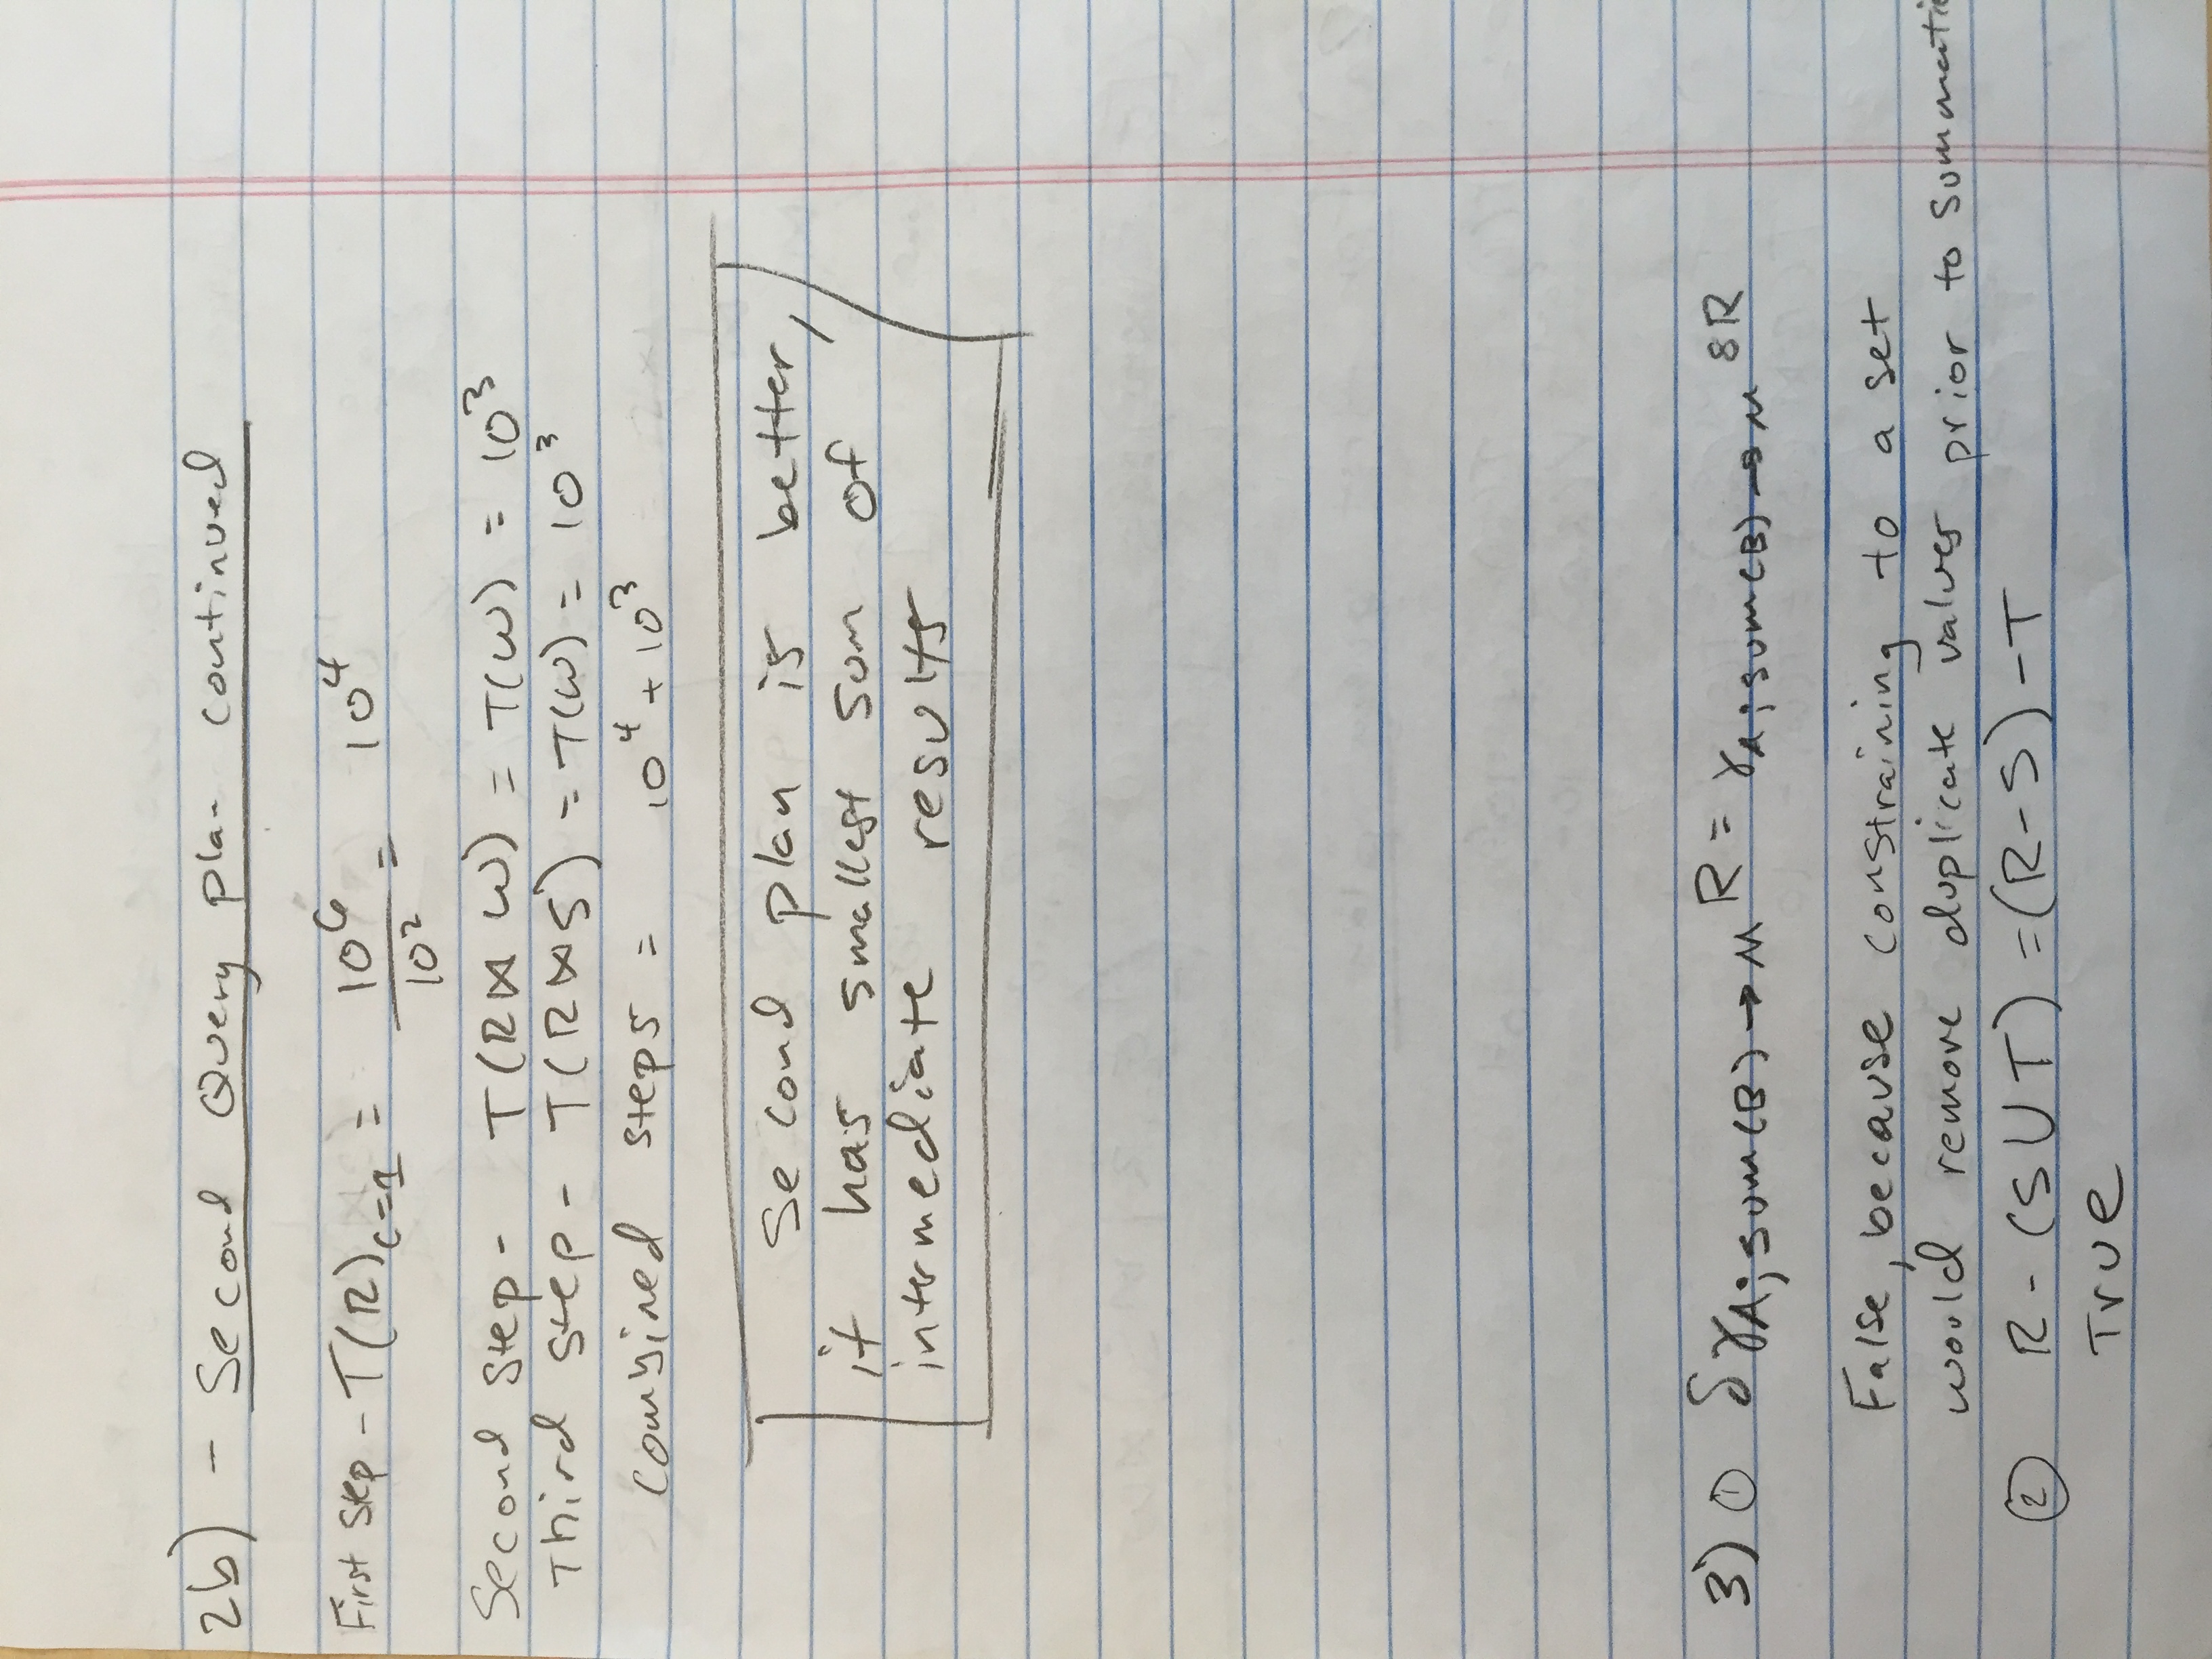 2b) - Second Query plan continued
First step - T(R)c=1 = 10^6 / 10^2 = 10^4
Second step - T(R⋈W) = T(W) = 10^3
Third step - T(R⋈S) = T(W) = 10^3
Combined steps = 10^4 + 10^3
Second plan is better,
it has smallest sum of
intermediate results
3) ① δγA;sum(B)→M R = γA;sum(B)→M δR
False, because constraining to a set
would remove duplicate values prior to summati
② R - (S∪T) = (R-S) - T
True